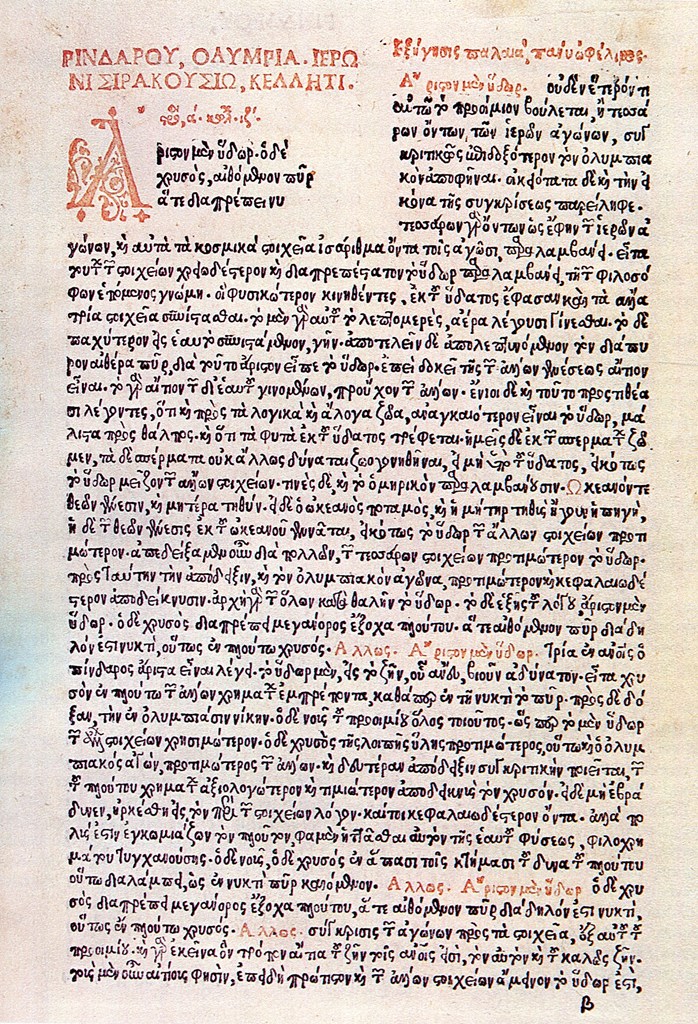 ΠΙΝΔΑΡΟΥ, ΟΛΥΜΠΙΑ. ΙΕΡΩ
ΝΙ ΣΙΡΑΚΟΥΣΙΩ, ΚΕΛΛΗΤΙ.
Αριστον μὲν ὕδωρ. ὁ δὲ
χρυσὸς, αἰθόμενον πῦρ
ἅτε διαπρέπει νυ
Ἐξήγησις παλαιὰ, πάνυ ὠφέλιμος.
Ἄριστον μὲν ὕδωρ. οὐδὲν ἕτερόν τι
αὐτῷ τὸ προοίμιον βούλεται, ἢ τεσσά
ρων ὄντων, τῶν ἱερῶν ἀγώνων, συγ
κριτικῶς ἐπιδοξότερον τὸν ὀλυμπια
κὸν ἀποφῆναι. ἀκρότατα δὲ καὶ τὴν εἰ
κόνα τῆς συγκρίσεως παρείληφε.
τεσσάρων γὰρ ὄντων ὡς ἔφην τῶν ἱερῶν ἀ
γώνων, καὶ αὐτὰ τὰ κοσμικὰ στοιχεῖα ἰσάριθμα ὄντα τοῖς ἀγῶσι, προσλαμβάνει. εἶτα
τούτων τῶν στοιχείων χρειωδέστερον καὶ διαπρεπέστατον τὸ ὕδωρ προσλαμβάνει, τῇ τῶν φιλοσό
φων ἑπόμενος γνώμῃ. οἱ φυσικώτερον κινηθέντες, ἐκ τοῦ ὕδατος ἔφασαν καὶ τὰ ἄλλα
τρία στοιχεῖα συνίστασθαι. τὸ μὲν γὰρ αὐτοῦ τὸ λεπτομερὲς, ἀέρα λέγουσι γίνεσθαι. τὸ δὲ
παχύτερον εἰς ἑαυτὸ συνιστάμενον, γῆν. ἀποτελεῖν δὲ ἀπολεπτυνόμενον τὸν διάπυ
ρον αἰθέρα πῦρ, διὰ τοῦτο ἄριστον εἶπε τὸ ὕδωρ. ἐπεὶ δοκεῖ τῆς τῶν ἄλλων γενέσεως αἴτιον
εἶναι. τὸ γὰρ αἴτιον τῶν δι' ἑαυτοῦ γινομένων, προὖχον τῶν ἄλλων. ἔνιοι δὲ καὶ τοῦτο προστιθέα
σι λέγοντες, ὅτι καὶ πρὸς τὰ λογικὰ καὶ ἄλογα ζῶα, ἀναγκαιότερον εἶναι τὸ ὕδωρ, μά
λιστα πρὸς θάλπος. καὶ ὅτι τὰ φυτὰ ἐκ τοῦ ὕδατος τρέφεται. ἡμεῖς δὲ ἐκ τῶν σπερμάτων ζῶ
μεν, τὰ δὲ σπέρματα οὐκ ἄλλως δύναται ζωογονηθῆναι, εἰ μὴ ὑπὸ τοῦ ὕδατος, εἰκότως
τὸ ὕδωρ μεῖζον τῶν ἄλλων στοιχείων. τινὲς δὲ, καὶ τὸ ὁμηρικὸν προσλαμβάνουσιν. Ωκεανόν τε
θεῶν γένεσιν, καὶ μητέρα τηθύν. εἰ δὲ ὁ ὠκεανὸς ποταμὸς, καὶ ἡ μήτηρ τηθὶς ἤγουν ἡ πηγὴ,
ἡ δὲ τῶν θεῶν γένεσις ἐκ τοῦ ὠκεανοῦ γεννᾶται, εἰκότως τὸ ὕδωρ τῶν ἄλλων στοιχείων προτι
μώτερον. ἀπεδείξαμεν οὖν διὰ πολλῶν, τῶν τεσσάρων στοιχείων προτιμώτερον τὸ ὕδωρ.
πρὸς ταύτην τὴν ἀπόδειξιν, καὶ τὸν ὀλυμπιακὸν ἀγῶνα, προτιμώτερον καὶ κεφαλαιωδέ
στερον ἀποδείκνυσιν. ἀρχὴ γὰρ τῶν ὅλων κατὰ θαλῆν τὸ ὕδωρ. τὸ δὲ ἑξῆς τοῦ λόγου, ἄριστον μὲν
ὕδωρ. ὁ δὲ χρυσὸς διαπρέπει μεγάνορος ἔξοχα πλούτου. ἅτε αἰθόμενον πῦρ διάδη
λόν ἐστι νυκτὶ, οὕτως ἐν πλούτω χρυσός. Αλλως. Ἄριστον μὲν ὕδωρ. Τρία ἐν ἀνοις ὁ
πίνδαρος ἄριστα εἶναι λέγει. τὸ ὕδωρ μὲν, εἰς τὸ ζῆν, οὗ ἄνευ, βιοῦν ἀδύνατον. εἶτα χρυ
σὸν ἐν πλούτω τῶν ἄλλων χρημάτων ἐμπρέποντα, καθάπερ ἐν τῇ νυκτὶ τὸ πῦρ. πρὸς δὲ δό
ξαν, τὴν ἐν ὀλυμπιάσιν νίκην. ὁ δὲ νοῦς τοῦ προοιμίου ὅλος τοιοῦτος. ὥσπερ τὸ μὲν ὕδωρ
τῶν ἄλλων στοιχείων χρησιμώτερον. ὁ δὲ χρυσὸς τῆς λοιπῆς ὕλης προτιμώτερος, οὕτω καὶ ὁ ὀλυμ
πιακὸς ἀγὼν, προτιμώτερος τῶν ἄλλων. καὶ δευτέραν ἀπόδειξιν συγκριτικὴν ποιεῖται, τῶν
τοῦ πλούτου χρημάτων ἀξιολογώτερον καὶ τιμιώτερον ἀποδεικνὺς τὸν χρυσόν. εἰ δὲ μὴ ἐβρά
δυνεν, ἠρκέσθη εἰς τὸν περὶ τῶν στοιχείων λόγον. καίτοι κεφαλαιωδέστερον ὄντα. ἀλλά
τις ἐστὶν ἐγκωμιάζων τὸν πλοῦτον, φαμὲν ἡττᾶσθαι αὐτὸν τῆς ἑαυτοῦ φύσεως, φιλοχρη
μάτου τυγχανούσης. ὁ δὲ νοῦς, ὁ δὲ χρυσὸς ἐν ἅπασι τοῖς κτήμασι τοῦ δυνατοῦ πλούτου
οὕτω διαλάμπει, ὡς ἐν νυκτὶ πῦρ καιόμενον. Αλλως. Ἄριστον μὲν ὕδωρ ὁ δὲ χρυ
σὸς διαπρέπει μεγάνορος ἔξοχα πλούτου, ἅτε αἰθόμενον πῦρ διάδηλόν ἐστι νυκτὶ,
οὕτως ἐν πλούτω χρυσός. Αλλως. σύγκρισις τῶν ἀγώνων πρὸς τὰ στοιχεῖα, ἐξ αὐτοῦ τοῦ
προοιμίου. καὶ γὰρ ἐκεῖνα ὃν τρόπον αἴτια τοῦ ζῆν τοῖς ἀνοις εἰσὶ, τὸν αὐτὸν καὶ τοῦ καλῶς ζῆν.
τοῖς μὲν οὖν αἰτίοις φησὶν, ἐπειδὴ πρώτιστον καὶ τῶν ἄλλων στοιχείων ἄμεινον τὸ ὕδωρ ἐστὶ,
β